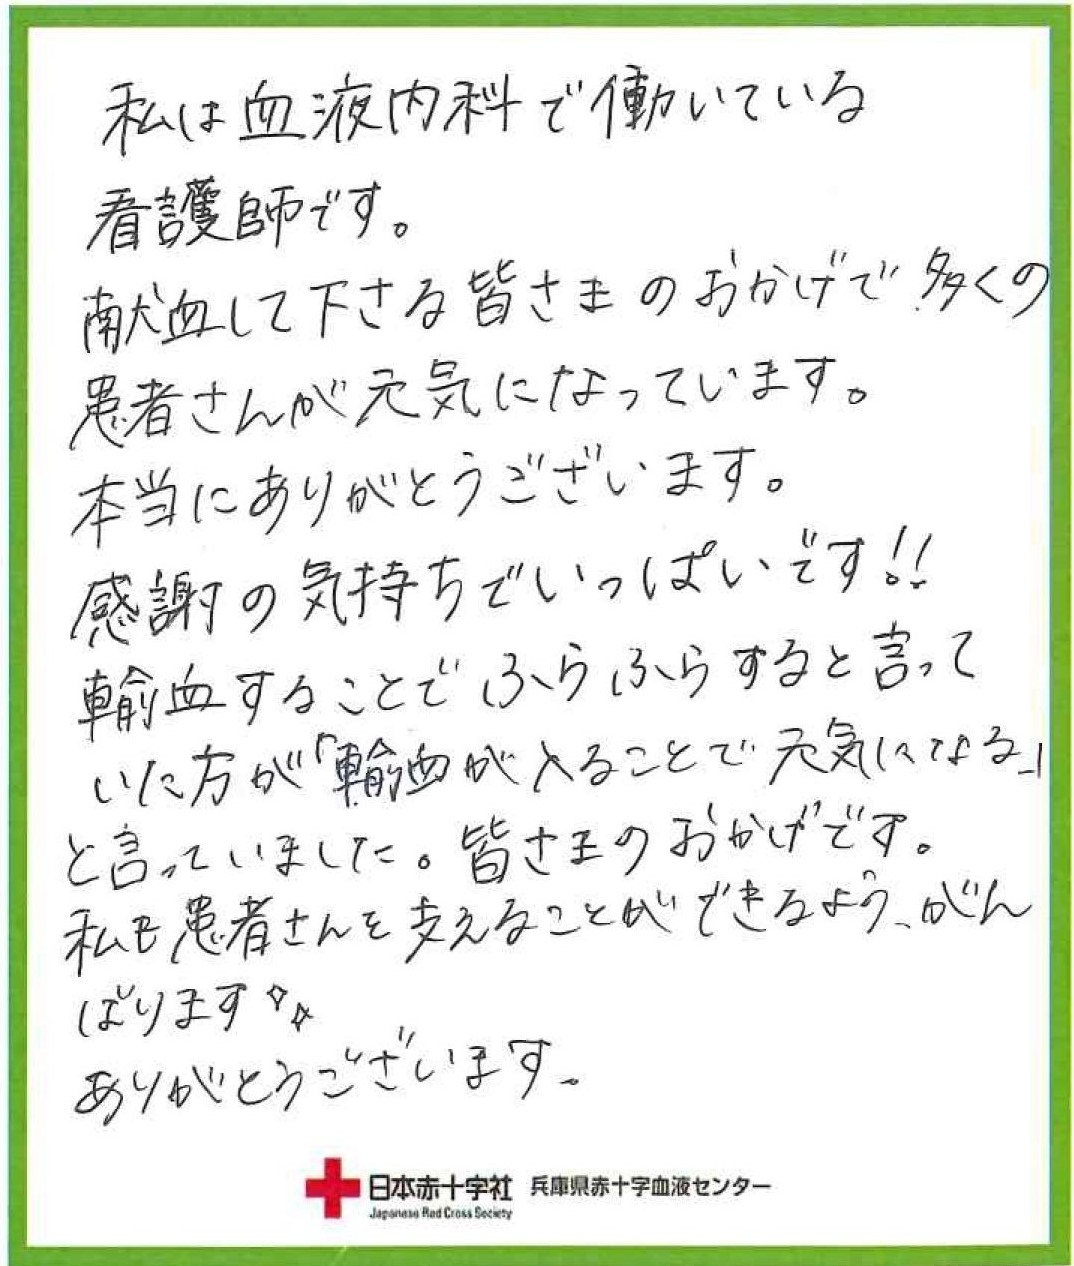 私は血液内科で働いている
看護師です。
献血して下さる皆さまのおかげで多くの
患者さんが元気になっています。
本当にありがとうございます。
感謝の気持ちでいっぱいです!!
輸血することでふらふらすると言って
いた方が「輸血が入ることで元気になる」
と言っていました。皆さまのおかげです。
私も患者さんを支えることができるよう、がん
ばります✧✧
ありがとうございます。
日本赤十字社 兵庫県赤十字血液センター
Japanese Red Cross Society